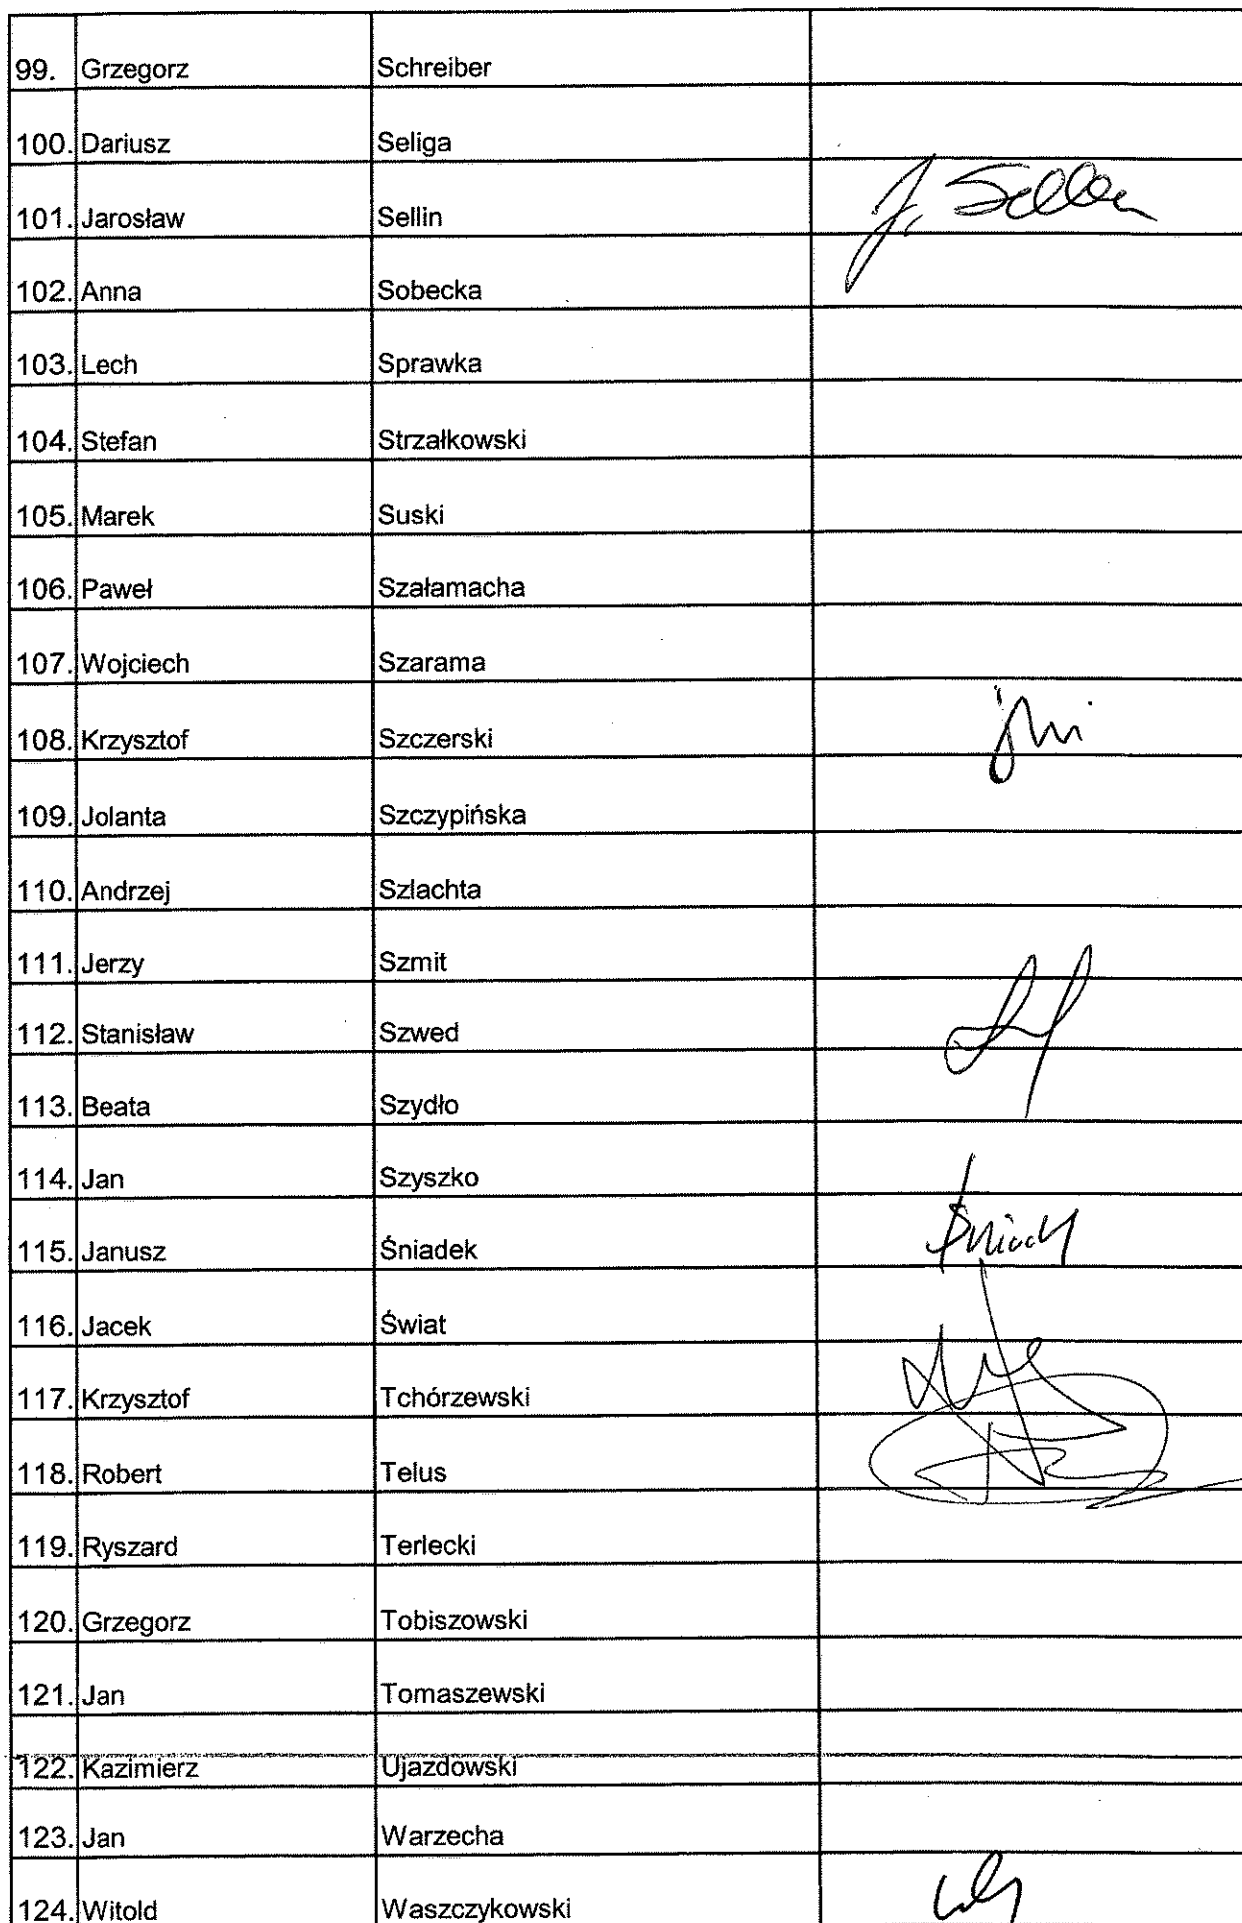 99. Grzegorz Schreiber
100. Dariusz Seliga
101. Jarosław Sellin J. Sellin
102. Anna Sobecka
103. Lech Sprawka
104. Stefan Strzałkowski
105. Marek Suski
106. Paweł Szałamacha
107. Wojciech Szarama
108. Krzysztof Szczerski
109. Jolanta Szczypińska
110. Andrzej Szlachta
111. Jerzy Szmit
112. Stanisław Szwed
113. Beata Szydło
114. Jan Szyszko
115. Janusz Śniadek
116. Jacek Świat
117. Krzysztof Tchórzewski
118. Robert Telus
119. Ryszard Terlecki
120. Grzegorz Tobiszowski
121. Jan Tomaszewski
122. Kazimierz Ujazdowski
123. Jan Warzecha
124. Witold Waszczykowski